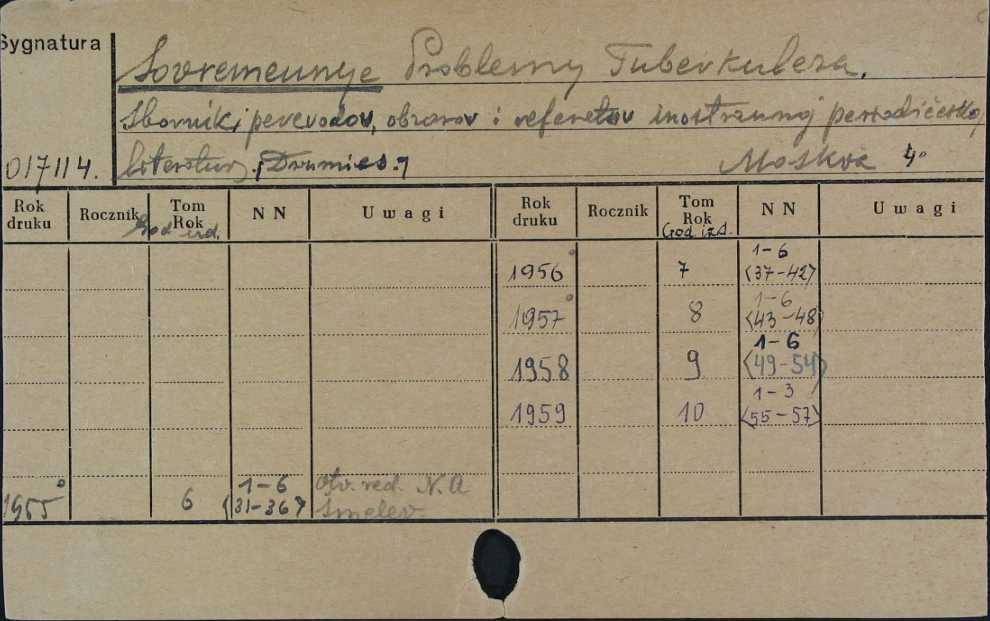 Sygnatura
Sovremennye Problemy Tuberkuleza.
Sbornik perevodov, obzorov i referatov inostrannoj periodičeskoj
017114. literatury. [Dvumies.] Moskva 4°
Rok druku Rocznik Tom Rok NN Uwagi Rok druku Rocznik Tom Rok NN Uwagi
God izd. God izd.
1956° 7 1-6 <37-42>
1957° 8 1-6 <43-48>
1958 9 1-6 <49-54>
1959 10 1-3 <55-57>
1955° 6 1-6 <31-36> Otv. red. N. A Smelev